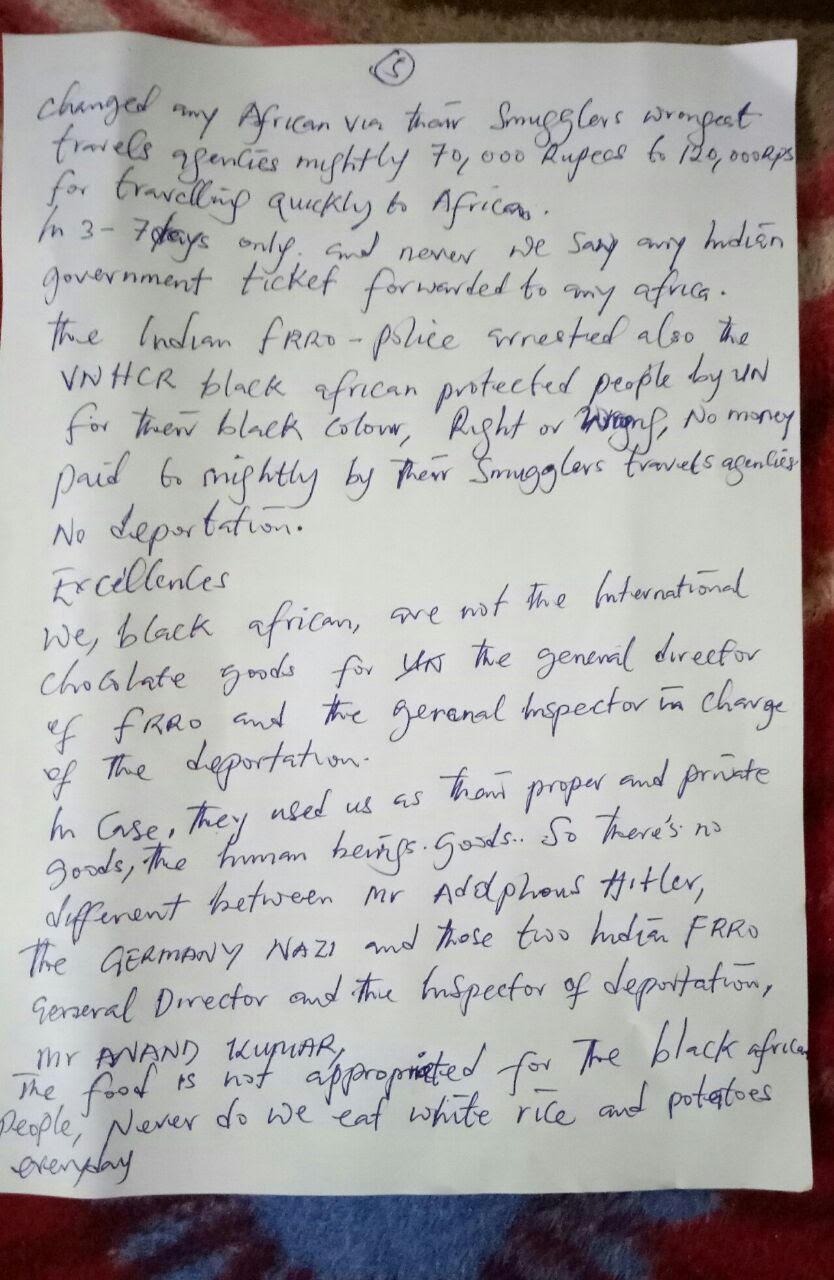 5
changed any African via their Smugglers wrongest
travels agencies mightly 70,000 Rupees to 120,000Rps
for travelling quickly to African.
In 3-7days only. and never we say any Indian
government ticket forwarded to any africa.
the Indian FRRO-police arrested also the
UNHCR black african protected people by UN
for their black colour, Right or Wrong, No money
paid to mightly by their Smugglers travels agencies
No deportation.
Excellences
We, black african, are not the International
chocolate goods for the general director
of FRRO and the general Inspector in charge
of the deportation.
In Case, they used us as their proper and private
goods, the human beings goods.. So there's no
different between Mr Adolphous Hitler,
the GERMANY NAZI and those two Indian FRRO
General Director and the Inspector of deportation,
Mr ANAND KUMAR,
The food is not appropriated for the black african
people, Never do we eat white rice and potatoes
everyday